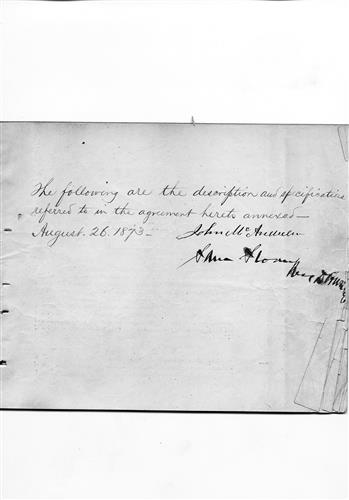 The following are the description and specifications
referred to in the agreement hereto annexed—
August. 26. 1873— John Mc